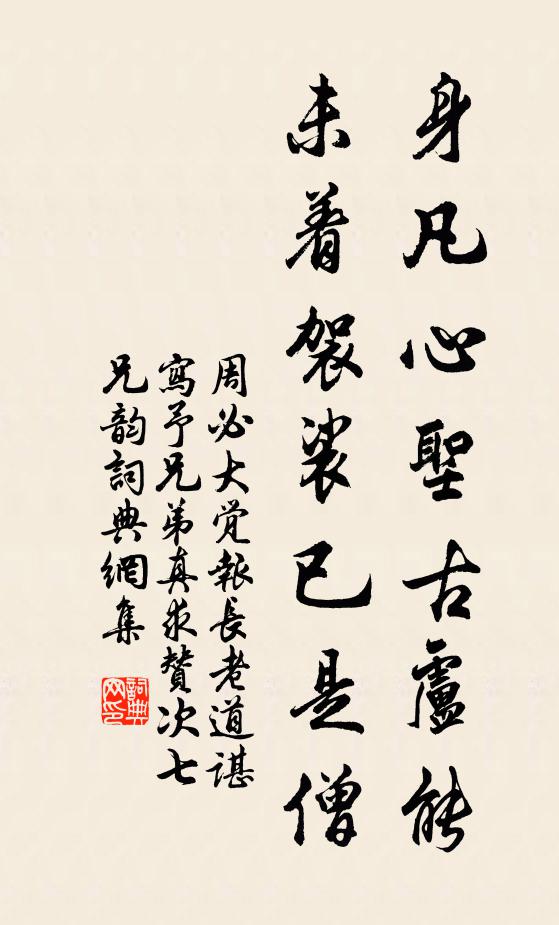 身凡心聖古盧能
未着袈裟已是僧
周必大覺報長老道諶
寫予兄弟真求贊次七
兄韵詞典網集
詞典网印